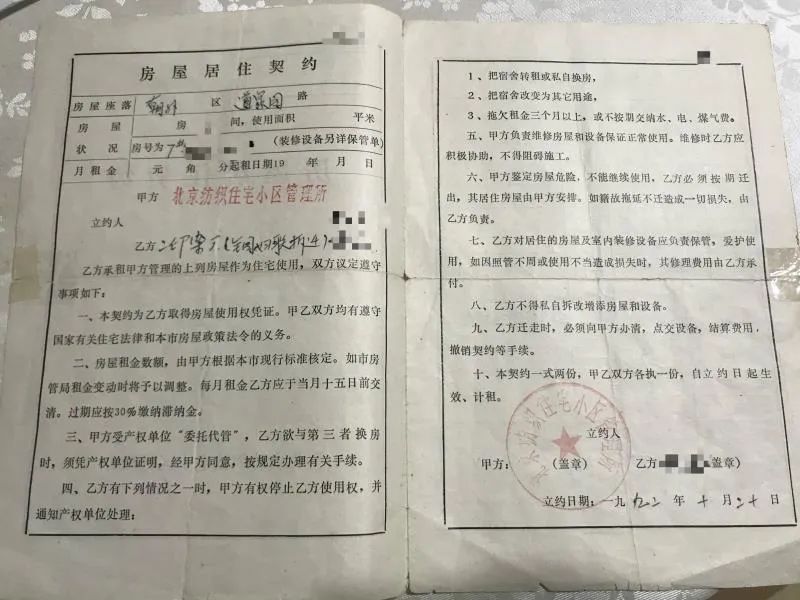 房屋居住契约
房屋座落 朝外 区 道家园 路
房屋 房 间，使用面积 平米
状况 房号为7 (装修设备另详保管单)
月租金 元 角 分起租日期19 年 月 日
甲方 北京纺织住宅小区管理所
立约人
乙方
乙方承租甲方管理的上列房屋作为住宅使用，双方议定遵守
事项如下：
一、本契约为乙方取得房屋使用权凭证。甲乙双方均有遵守
国家有关住宅法律和本市房屋政策法令的义务。
二、房屋租金数额，由甲方根据本市现行标准核定。如市房
管局租金变动时将予以调整。每月租金乙方应于当月十五日前交
清。过期应按30%缴纳滞纳金。
三、甲方受产权单位“委托代管”，乙方欲与第三者换房
时，须凭产权单位证明，经甲方同意，按规定办理有关手续。
四、乙方有下列情况之一时，甲方有权停止乙方使用权，并
通知产权单位处理：
1、把宿舍转租或私自换房，
2、把宿舍改变为其它用途，
3、拖欠租金三个月以上，或不按期交纳水、电、煤气费。
五、甲方负责维修房屋和设备保证正常使用。维修时乙方应
积极协助，不得阻碍施工。
六、甲方鉴定房屋危险，不能继续使用，乙方必须按期迁
出，其居住房屋由甲方安排。如籍故拖延不迁造成一切损失，由
乙方负责。
七、乙方对居住的房屋及室内装修设备应负责保管，爱护使
用，如因照管不周或使用不当造成损失时，其修理费用由乙方承
付。
八、乙方不得私自拆改增添房屋和设备。
九、乙方迁走时，必须向甲方办清，点交设备，结算费用，
撤销契约等手续。
十、本契约一式两份，甲乙双方各执一份，自立约日起生
效、计租。
北京纺织住宅小区管理所
立约人
甲方： (盖章) 乙方 (盖章)
立约日期：一九九二年十月二十日